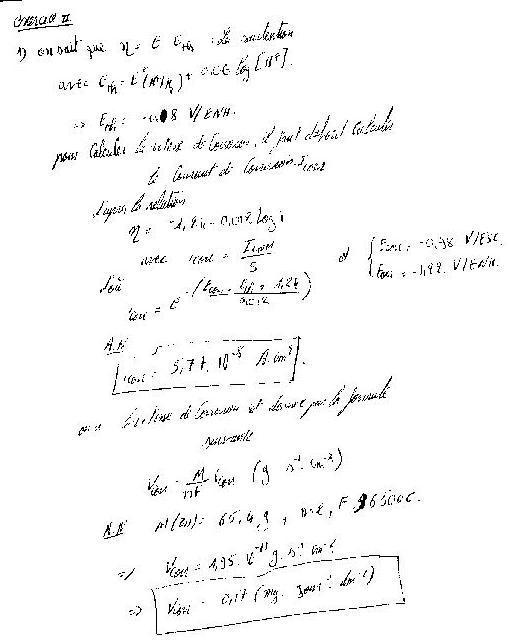 Exercice II
1) on sait que η = E E_th : la surtension
avec E_th = E°(H⁺/H₂) + 0,06 log [H⁺].
⇒ E_th = -0,18 V/ENH.
pour calculer la vitesse de corrosion, il faut d'abord calculer
le courant de corrosion I_corr
d'après la relation
η = -1,24 - 0,012 log i
avec i_corr = I_corr / S et { E_corr = -0,98 V/ESC.
E_corr = V/ENH.
d'où
i_corr = e^-(E_corr - E_th + 1,24 / )
A.N
i_corr = 5,77. 10⁻⁸ A.cm⁻²
on a la vitesse de corrosion est donnée par la formule
suivante
V_corr = M/nF i_corr (g s⁻¹. cm⁻²)
A.N M(Zn) = 65,4 g, n=2, F = 96500 C.
⇒ V_corr = 1,95. 10⁻¹¹ g. s⁻¹ cm⁻²
⇒ V_corr = 0,17 (mg. jour⁻¹. dm⁻²)